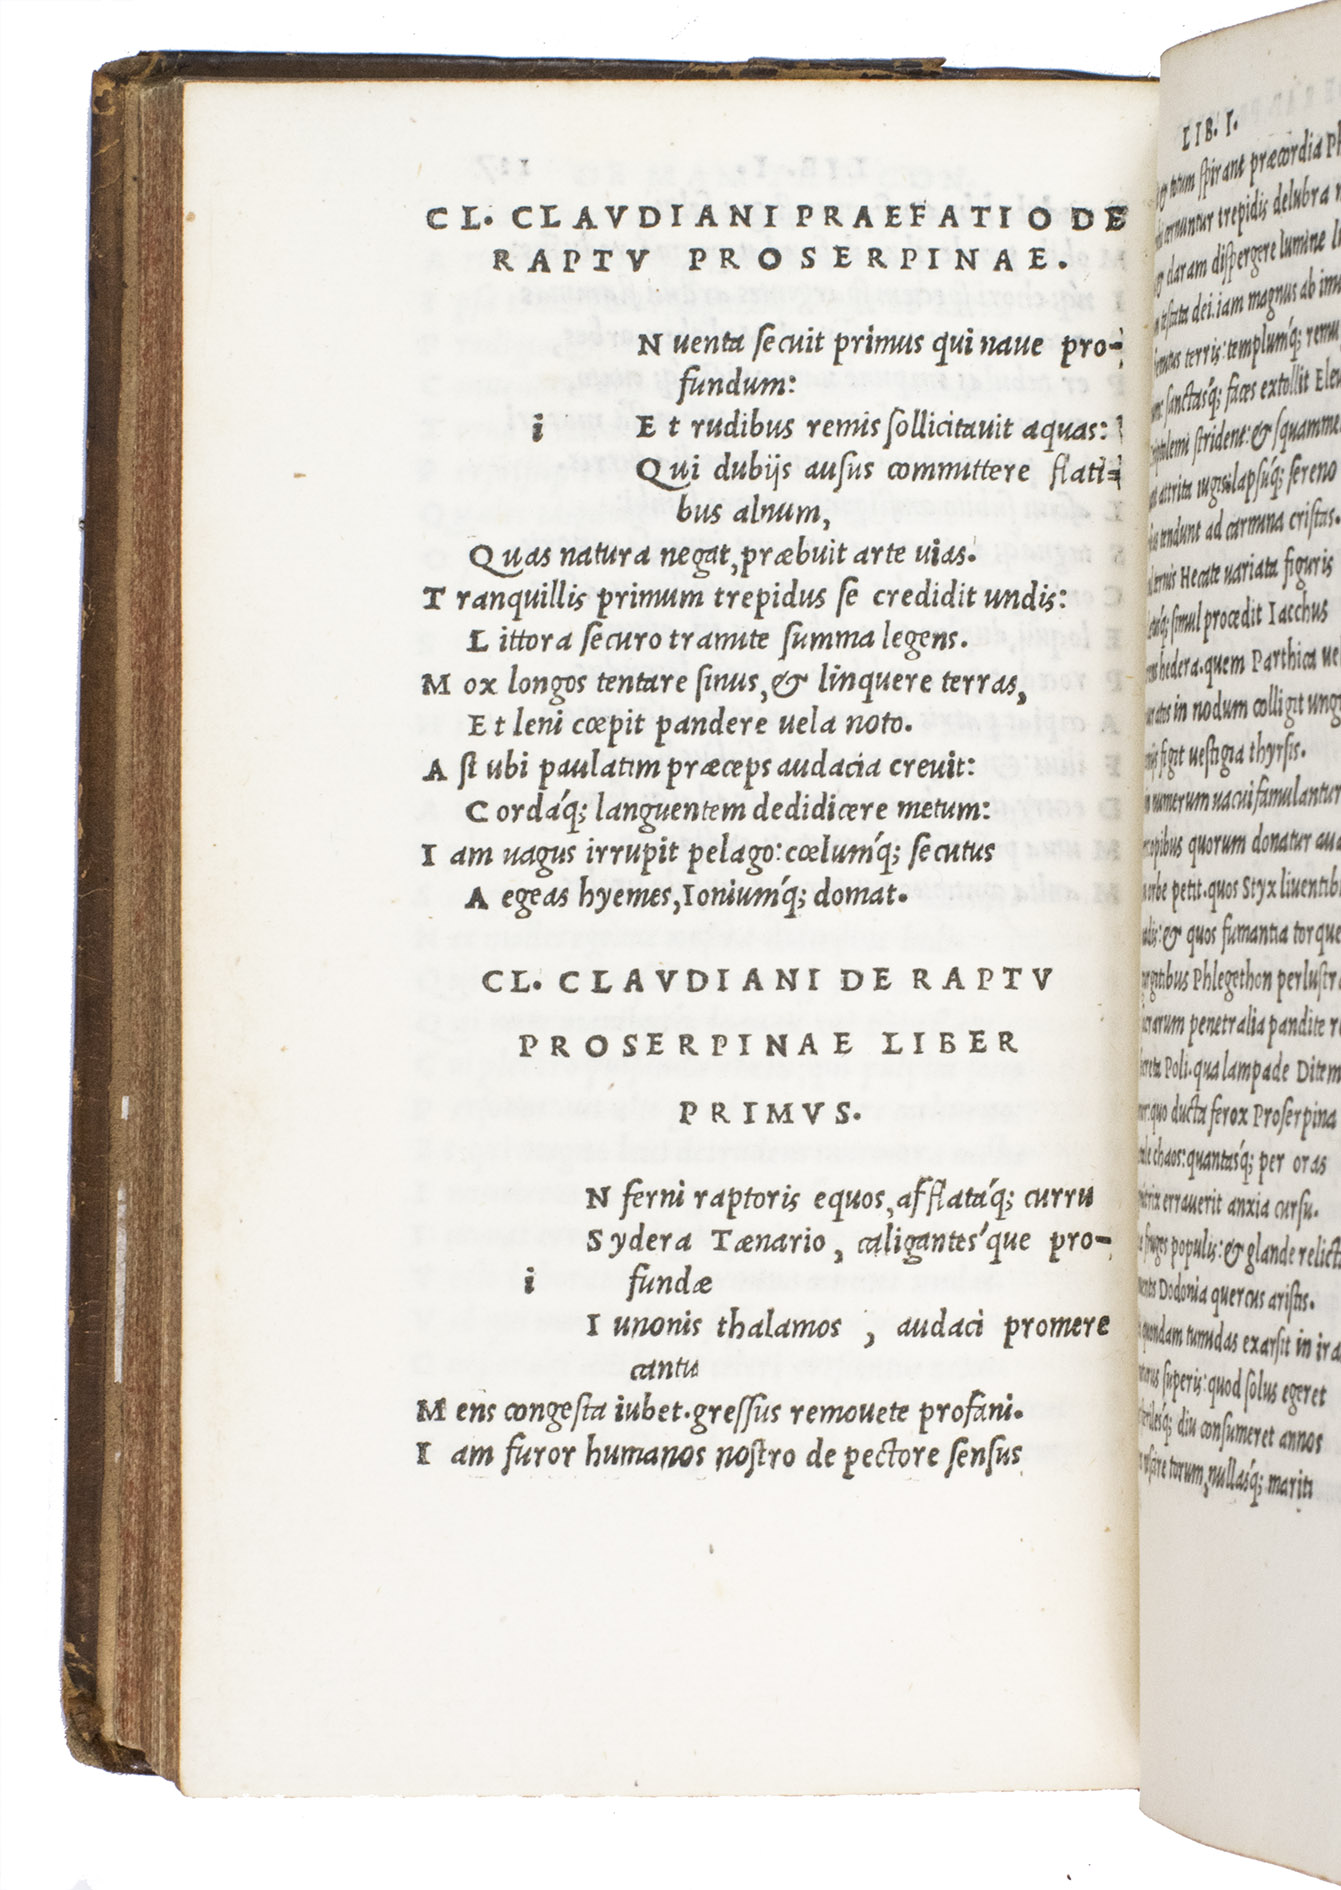 CL. CLAVDIANI PRAEFATIO DE
RAPTV PROSERPINAE.
N uenta secuit primus qui naue pro-
fundum:
i E t rudibus remis sollicitauit aquas:
Qui dubijs ausus committere flati=
bus alnum,
Quas natura negat, præbuit arte uias.
T ranquillis primum trepidus se credidit undis:
L ittora securo tramite summa legens.
M ox longos tentare sinus, & linquere terras,
E t leni cœpit pandere uela noto.
A st ubi paulatim præceps audacia creuit:
C ordaq́; languentem dedidicere metum:
I am uagus irrupit pelago: cœlumq́; secutus
A egeas hyemes, Ioniumq́; domat.
CL. CLAVDIANI DE RAPTV
PROSERPINAE LIBER
PRIMVS.
N ferni raptoris equos, afflataq́; curru
S ydera Tænario, caligantes´que pro-
i fundæ
I unonis thalamos, audaci promere
cantu
M ens congesta iubet. gressus remouete profani.
I am furor humanos nostro de pectore sensus
LIB. I.
totum spirant præcordia
cernuntur trepidis delubra
claram dispergere lumine
testata dei. iam magnus ab
terris: templumq́;
sanctasq́; faces extollit
strident: &
attrita iugis: lapsuq́; sereno
tendunt ad carmina cristas.
Hecate uariata figuris
simul procedit Iacchus
hedera. quem Parthica
in nodum colligit
figit uestigia thyrsis.
numerum uacui famulantur
quorum donatur
petit. quos Styx
& quos fumantia
Phlegethon
penetralia pandite
Poli. qua lampade Ditem
quo ducta ferox Proserpina
chaos: quantasq́; per oras
errauerit anxia cursu.
populis: & glande
Dodonia quercus aristis.
quondam tumidas exarsit in
superis: quod solus egeret
diu consumeret annos
torum, nullasq́; mariti